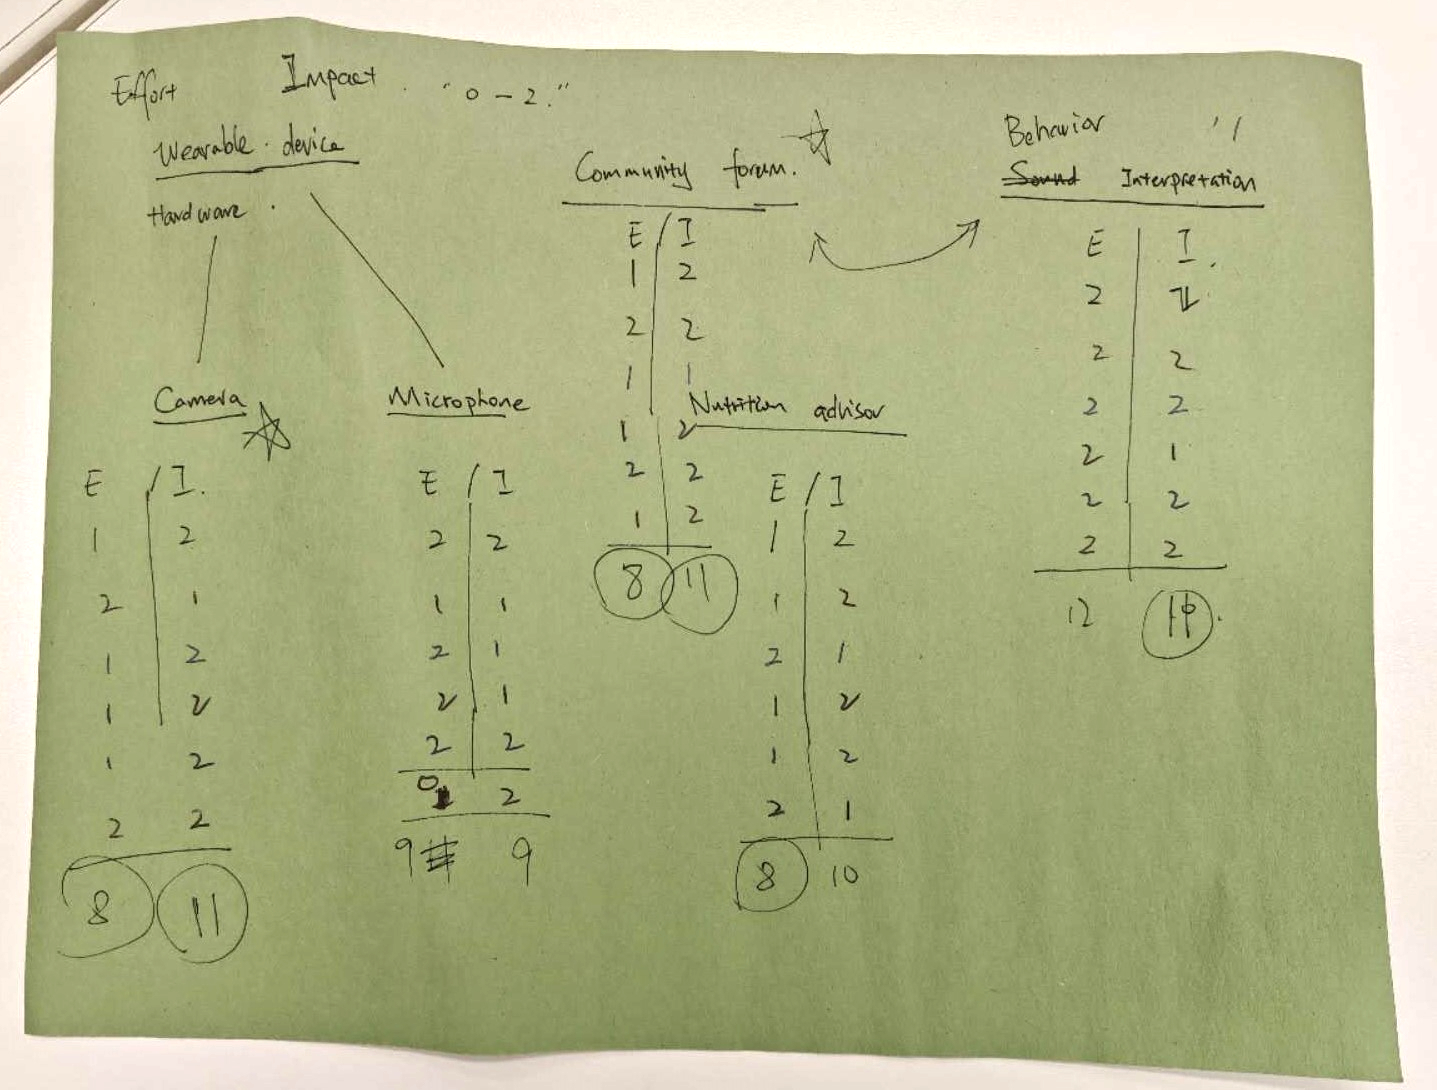 Effort Impact. "0 - 2."
Wearable device
Hardware.
Camera
E / I.
1 2
2 1
1 2
1 2
1 2
2 2
8 11
Microphone
E / I
2 2
1 1
2 1
2 1
2 2
0 2
9 9
Community forum.
E / I
1 2
2 2
1 1
1 2
2 2
1 2
8 11
Nutrition advisor
E / I
1 2
1 2
2 1
1 2
1 2
2 1
8 10
Behavior
Sound Interpretation
E I.
2
2 2
2 2
2 1
2 2
2 2
12